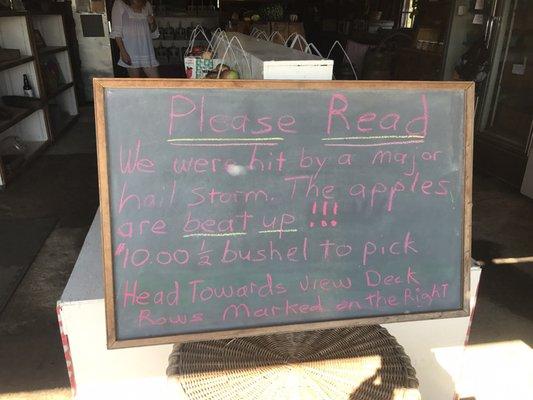 Please Read
We were hit by a major
hail storm. The apples
are beat up !!!
$10.00 ½ bushel to pick
Head Towards View Deck
Rows Marked on the Right